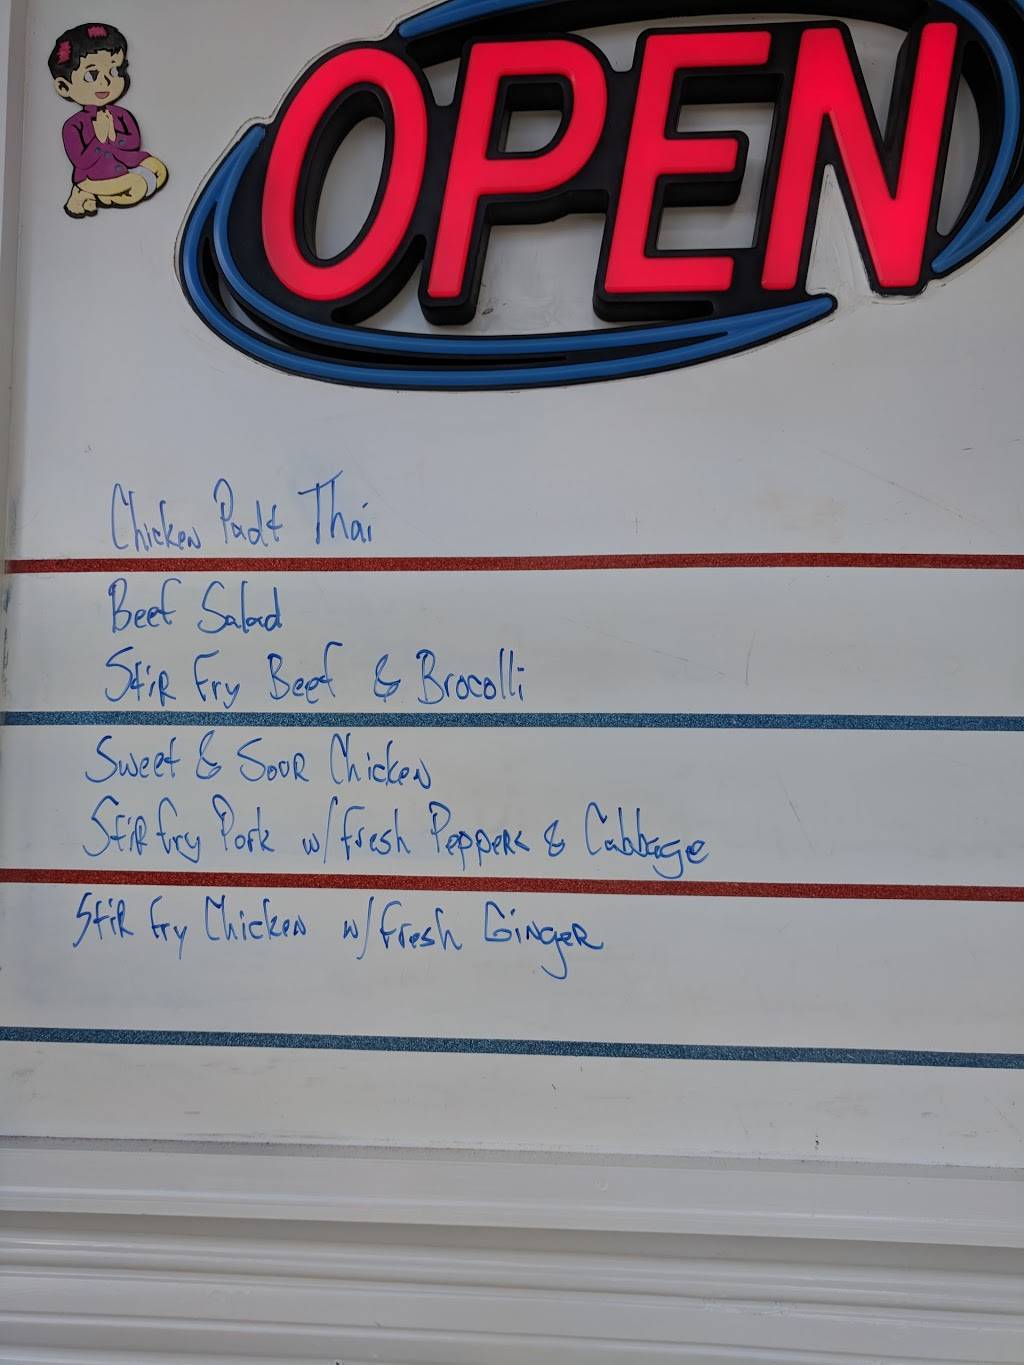 OPEN
Chicken Padt Thai
Beef Salad
Stir Fry Beef & Brocolli
Sweet & Sour Chicken
Stir fry Pork w/fresh Peppers & Cabbage
Stir fry Chicken w/fresh Ginger